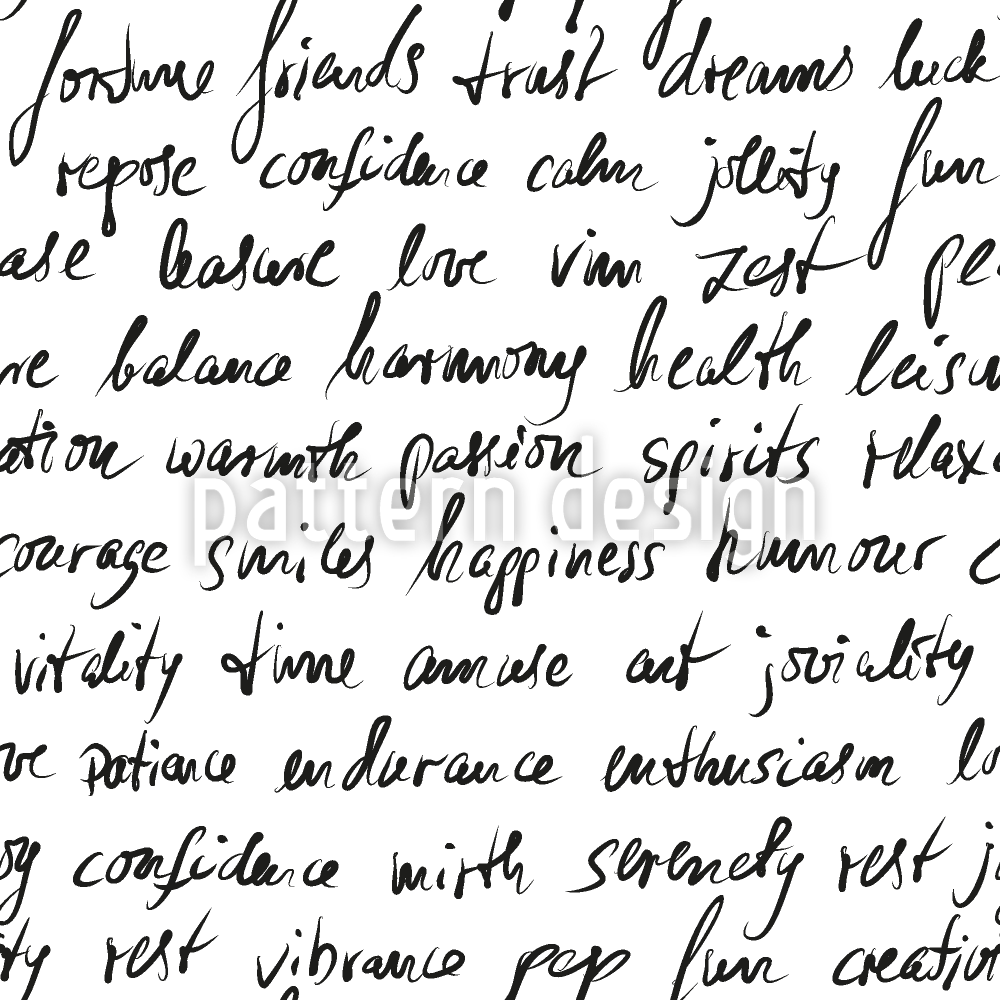 fortune friends trust dreams luck
repose confidence calm jollity fun
ase leasure love vim zest pe
re balance harmony health leisu
ation warmth passion spirits relaxa
pattern design
courage smiles happiness humour c
vitality time amuse art joviality
ve patience endurance enthusiasm lo
oy confidence mirth serenety rest j
ity rest vibrance pep fun creativi